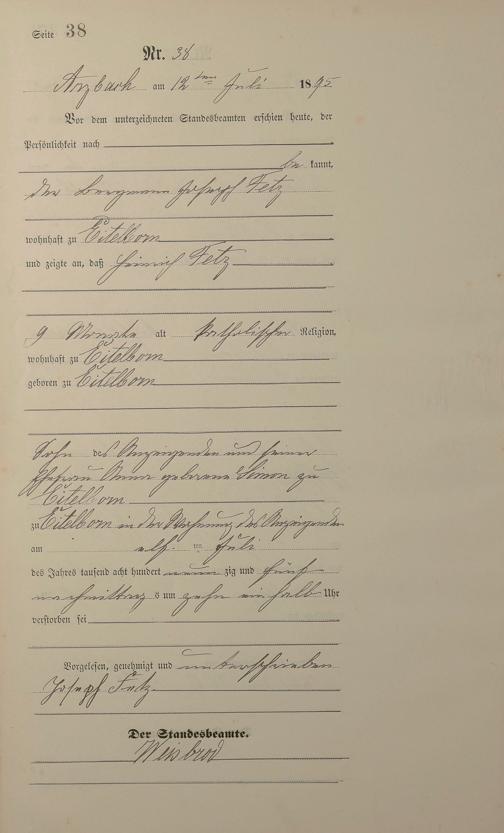 Seite 38
Nr. 38
Arzbach am 12ten Juli 1895
Vor dem unterzeichneten Standesbeamten erschien heute, der
Persönlichkeit nach
be kannt,
der Bergmann Joseph Fetz
wohnhaft zu Eitelborn
und zeigte an, daß Heinrich Fetz
9 Monate alt katholischer Religion,
wohnhaft zu Eitelborn
geboren zu Eitelborn
Sohn des Anzeigenden und seiner
Ehefrau Anna geborene Simon zu
Eitelborn
zu Eitelborn in der Wohnung des Anzeigenden
am elf ten Juli
des Jahres tausend acht hundert neun zig und fünf
nachmittag s um zehn ein halb Uhr
verstorben sei
Vorgelesen, genehmigt und unterschrieben
Joseph Fetz
Der Standesbeamte.
Weisbrod